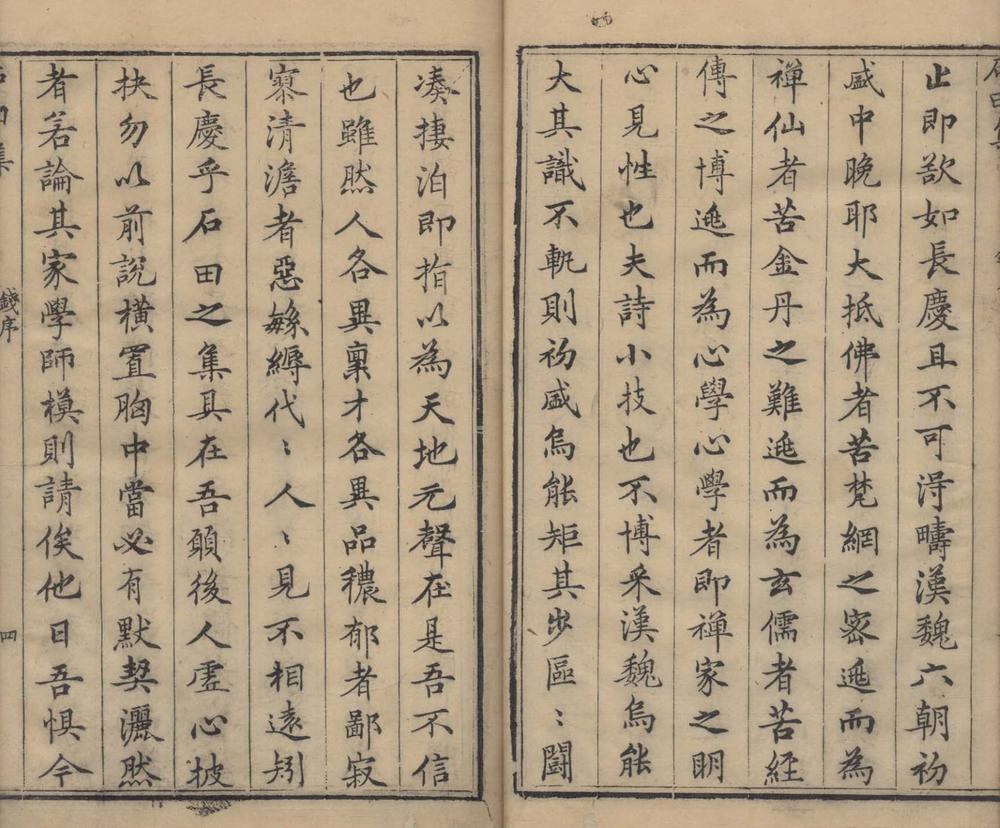 止即欲如長慶且不可淂疇漢魏六朝初
盛中晚耶大抵佛者苦梵網之宻逃而為
禪仙者苦金丹之難逃而為玄儒者苦經
傳之博逃而為心學心學者即禪家之明
心見性也夫詩小技也不博采漢魏烏能
大其識不軌則初盛烏能矩其步區〻闘
湊捿泊即指以為天地元聲在是吾不信
也雖然人各異稟才各異品穠郁者鄙寂
寥清澹者惡繇縟代〻人〻見不相遠矧
長慶乎石田之集具在吾願後人虛心披
抉勿以前說橫置胸中當必有默契灑然
者若論其家學師模則請俟他日吾惧今
石田集
錢序
四